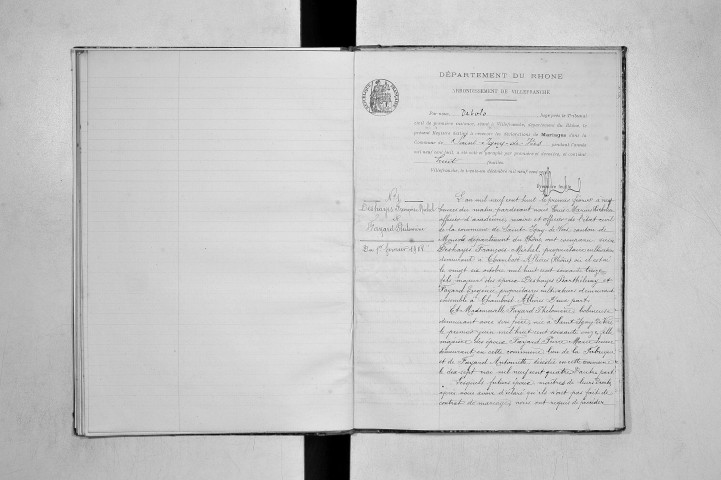 DÉPARTEMENT DU RHONE
ARRONDISSEMENT DE VILLEFRANCHE
Par nous Juge près le Tribunal
civil de première instance séant à Villefranche, département du Rhône, le
présent Registre destiné à recevoir les Déclarations de Mariages dans la
Commune de Saint-Igny-de-Vers pendant l'année
mil neuf cent huit, a été coté et paraphé par premier et dernier, et contient
huit feuillets
Villefranche, le décembre mil neuf cent
N° 1
Deshayes François Michel
&
Fayard Philomène
Du 1er février 1908
L'an mil neuf cent huit le premier février à
heures du matin pardevant nous
officier d'académie, maire et officier de l'état civil
de la commune de Saint-Igny de Vers, canton de
Monsols département du Rhône, ont comparu sieur
Deshayes François Michel, propriétaire cultivateur
demeurant à Chambost Allières (Rhône) où il est né
le vingt six octobre mil huit cent soixante treize
fils majeur des époux Deshayes Barthélemy et
Fayard propriétaires cultivateurs demeurant
ensemble à Chambost Allières D'une part.
Et Mademoiselle Fayard Philomène
demeurant avec son père, née à Saint Igny de Vers
le premier juin mil huit cent soixante onze fille
majeure des époux Fayard Pierre Marie
demeurant en cette commune lieu de la
et de Fayard Antoinette décédée en cette commune
le dix sept mai mil neuf cent quatre D'autre part
Lesquels futurs époux maîtres de leurs Droits
après nous avoir déclaré qu'ils n'ont pas fait de
contrat de mariage, nous ont requis de procéder